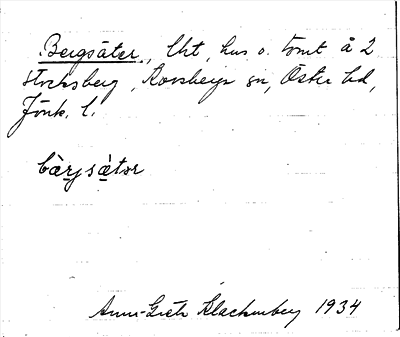 Bergsäter, lht, hus o. tomt å 2
Stocksberg, Korsberga sn, Östra hd,
Jönk. l.
bærjsǽtər
Anna-Greta Klackenberg 1934